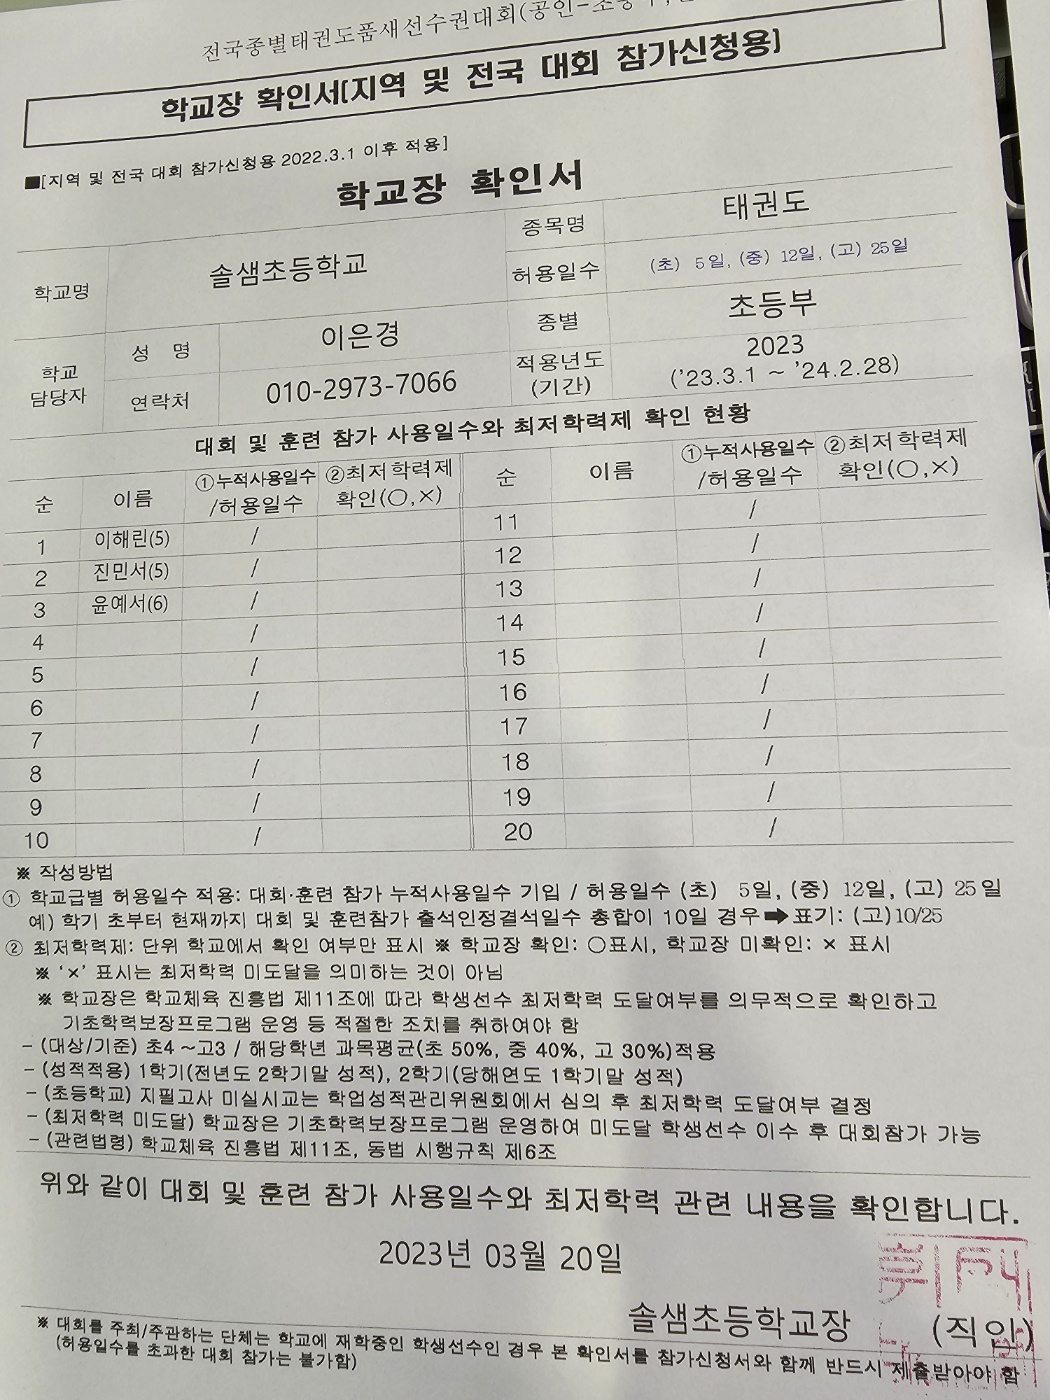 전국종별태권도품새선수권대회(공인-
학교장 확인서[지역 및 전국 대회 참가신청용]
■[지역 및 전국 대회 참가신청용 2022.3.1 이후 적용]
학교장 확인서
학교명 솔샘초등학교 종목명 태권도
허용일수 (초) 5일, (중) 12일, (고) 25일
학교 담당자 성 명 이은경 종별 초등부
연락처 010-2973-7066 적용년도 (기간) 2023 ('23.3.1 ~ '24.2.28)
대회 및 훈련 참가 사용일수와 최저학력제 확인 현황
순 이름 ①누적사용일수 /허용일수 ②최저학력제 확인(○,×) 순 이름 ①누적사용일수 /허용일수 ②최저학력제 확인(○,×)
1 이해린(5) / 11 /
2 진민서(5) / 12 /
3 윤예서(6) / 13 /
4 / 14 /
5 / 15 /
6 / 16 /
7 / 17 /
8 / 18 /
9 / 19 /
10 / 20 /
※ 작성방법
① 학교급별 허용일수 적용: 대회·훈련 참가 누적사용일수 기입 / 허용일수 (초) 5일, (중) 12일, (고) 25일
예) 학기 초부터 현재까지 대회 및 훈련참가 출석인정결석일수 총합이 10일 경우➡표기: (고)10/25
② 최저학력제: 단위 학교에서 확인 여부만 표시 ※ 학교장 확인: ○표시, 학교장 미확인: × 표시
※ '×' 표시는 최저학력 미도달을 의미하는 것이 아님
※ 학교장은 학교체육 진흥법 제11조에 따라 학생선수 최저학력 도달여부를 의무적으로 확인하고
기초학력보장프로그램 운영 등 적절한 조치를 취하여야 함
- (대상/기준) 초4 ~고3 / 해당학년 과목평균(초 50%, 중 40%, 고 30%)적용
- (성적적용) 1학기(전년도 2학기말 성적), 2학기(당해연도 1학기말 성적)
- (초등학교) 지필고사 미실시교는 학업성적관리위원회에서 심의 후 최저학력 도달여부 결정
- (최저학력 미도달) 학교장은 기초학력보장프로그램 운영하여 미도달 학생선수 이수 후 대회참가 가능
- (관련법령) 학교체육 진흥법 제11조, 동법 시행규칙 제6조
위와 같이 대회 및 훈련 참가 사용일수와 최저학력 관련 내용을 확인합니다.
2023년 03월 20일
솔샘초등학교장 (직인)
※ 대회를 주최/주관하는 단체는 학교에 재학중인 학생선수인 경우 본 확인서를 참가신청서와 함께 반드시 제출받아야 함
(허용일수를 초과한 대회 참가는 불가함)